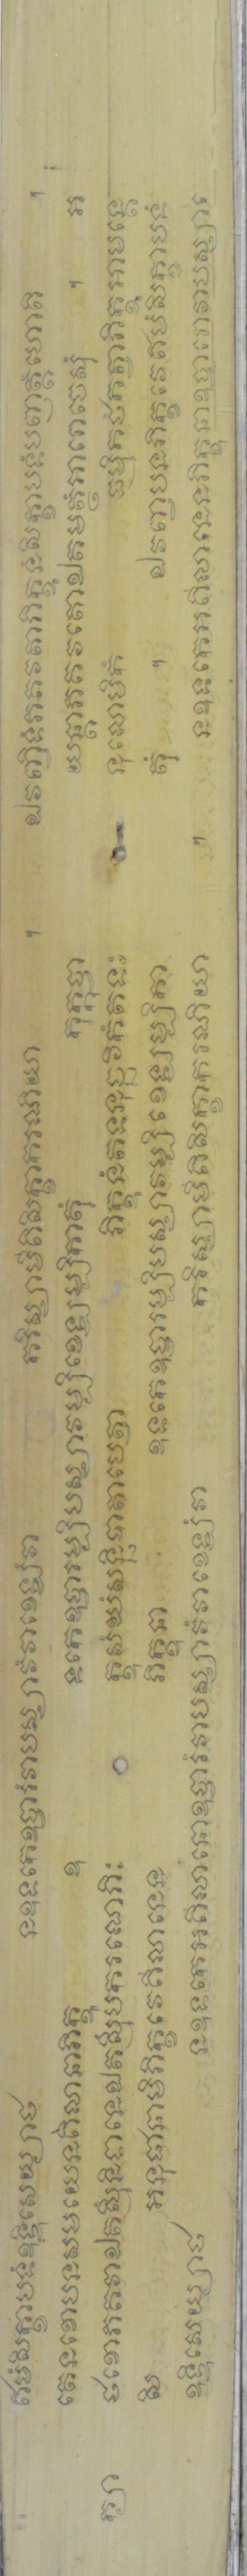 ឥមំសិក្ខាបទំឧទ្ទិសេយ្យាថ នឧទកេឧច្ចារំវាបស្សាវំវាខេឡំវា ករិស្សាមីតិសិក្ខាករណិយា ។ ឯវញ្ចិទំភគវតាភិក្ខុនំសិក្ខាបទំបញាត្តំហោតិ ។
តេនខោបនសមយេនគិលានាភិក្ខុ ឧ ទកេឧច្ចារម្បិបស្សាវម្បិខេឡម្បិកាតុំ កុក្កុច្ចា យន្តាភគវតោឯតមត្ថំអារោចេសុំ ។ អ
ថខោភគវាឯតស្មិំនិទានេឯតស្មិំបករណេភិ ក្ខុសំឃំសន្និបាតាបេត្វា ភិក្ខុនំតទនុច្ឆវិកំតទ នុលោមិកំ ធម្មិកថំកត្វាភិក្ខុអាមន្តេ
សិ អនុជានាមិភិក្ខវេគិលានេន ភិក្ខុនា ឧទកេឧច្ចារម្បិបស្សាវម្បិខេឡម្បិកា តុំ ។ ឯវញ្ចបនភិក្ខវេឥមំសិក្ខាបទំ
ឧទ្ទិសេយ្យាថ នឧទកេអគិលានោឧច្ចារំវាបស្សាវំវាខេឡំវា ករិស្សាមីតិសិក្ខាករណិយា ។ នឧទកេអគិលានេនភិក្ខុនាឧច្ចារោវាបស្សាវ